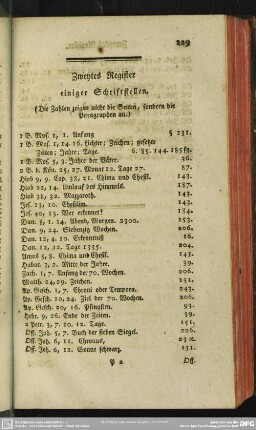 229
Zweytes Register
einiger Schriftstellen.
(Die Zahlen zeigen nicht die Seiten, sondern die
Paragraphen an.)
1 B. Mos. 1, 1. Anfang § 231.
1 B. Mos. 1, 14. 16. Lichter; Zeichen; gesetzte
Zeiten; Jahre; Tage. 6. 85. 144. 185
1 B. Mos. 5, 3. Jahre der Väter. 36.
2 B. d. Kön. 25, 27. Monat 12. Tage 27. 87.
Hiob 9, 9. Cap. 38, 31. Chima und Chesil. 143.
Hiob 22, 14. Umlauf des Himmels. 187.
Hiob 38, 32. Mazzaroth. 143.
Jes. 13, 10. Chesilim. 143.
Jes. 40, 13. Wer erkennet? 184.
Dan. 8, 14. Abend, Morgen. 2300. 153.
Dan. 9, 24. Siebenzig Wochen. 206.
Dan. 12, 4. 10. Erkenntniß 16.
Dan. 12, 12. Tage 1335. 204.
Amos 5, 8. Chima und Chesil. 143.
Habac. 3, 2. Mitte der Jahre. 39.
Zach. 1, 7. Anfang der 70. Wochen. 206.
Matth. 24, 29. Zeichen. 151.
Ap. Gesch. 1, 7. Chroni oder Tempora. 243.
Ap. Gesch. 10, 24. Ziel der 70. Wochen. 206.
Ap. Gesch. 20, 16. Pfingsten. 93.
Hebr. 9, 26. Ende der Zeiten. 39.
2 Petr. 3, 7. 10. 12. Tage. 151.
Off. Joh. 5, 7. Buch der sieben Siegel. 226.
Off. Joh. 6, 11. Chronus,
Off. Joh. 6, 12. Sonne schwarz. 151.
P 2 Off.